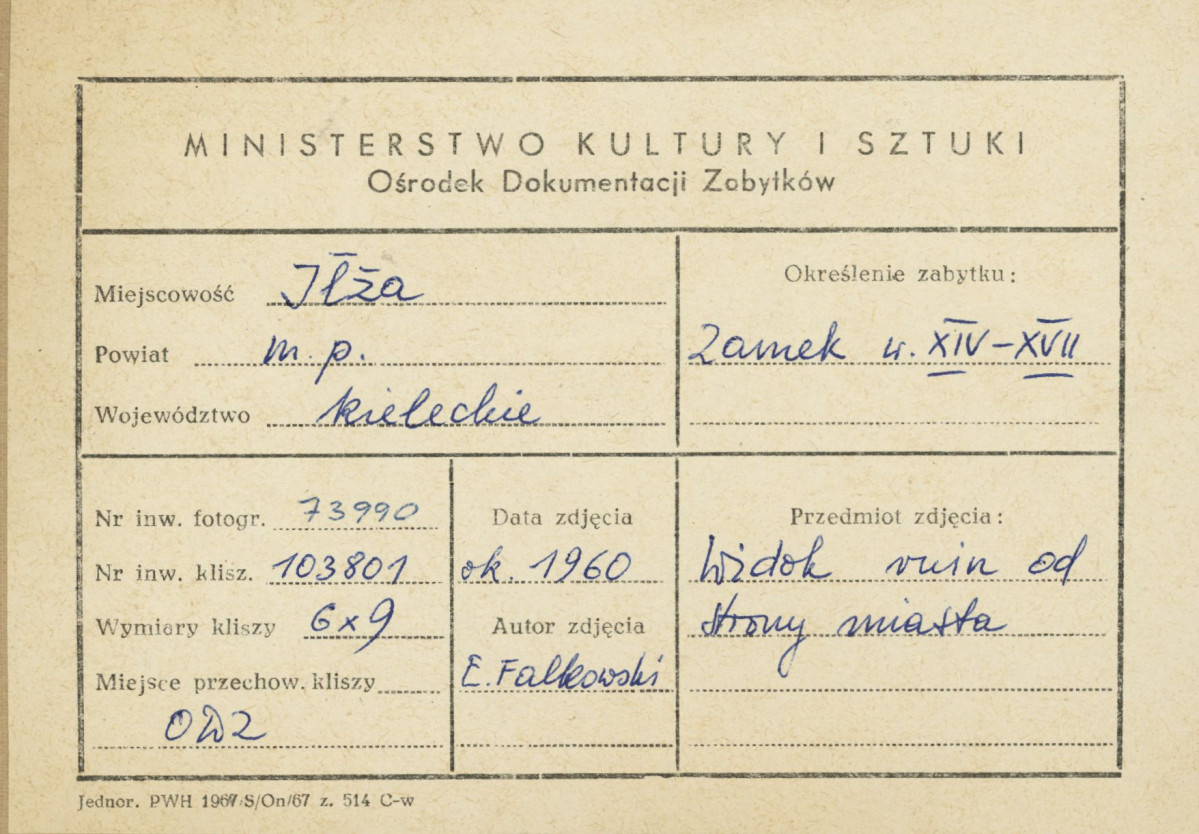 MINISTERSTWO KULTURY I SZTUKI
Ośrodek Dokumentacji Zabytków
Miejscowość Iłża
Powiat m. p.
Województwo kieleckie
Określenie zabytku:
Zamek w. XIV-XVII
Nr inw. fotogr. 73990
Nr inw. klisz. 103801
Wymiary kliszy 6x9
Miejsce przechow. kliszy
ODZ
Data zdjęcia
ok. 1960
Autor zdjęcia
E. Falkowski
Przedmiot zdjęcia:
Widok ruin od
strony miasta
Jednor. PWH 1967/S/On/67 z. 514 C-w